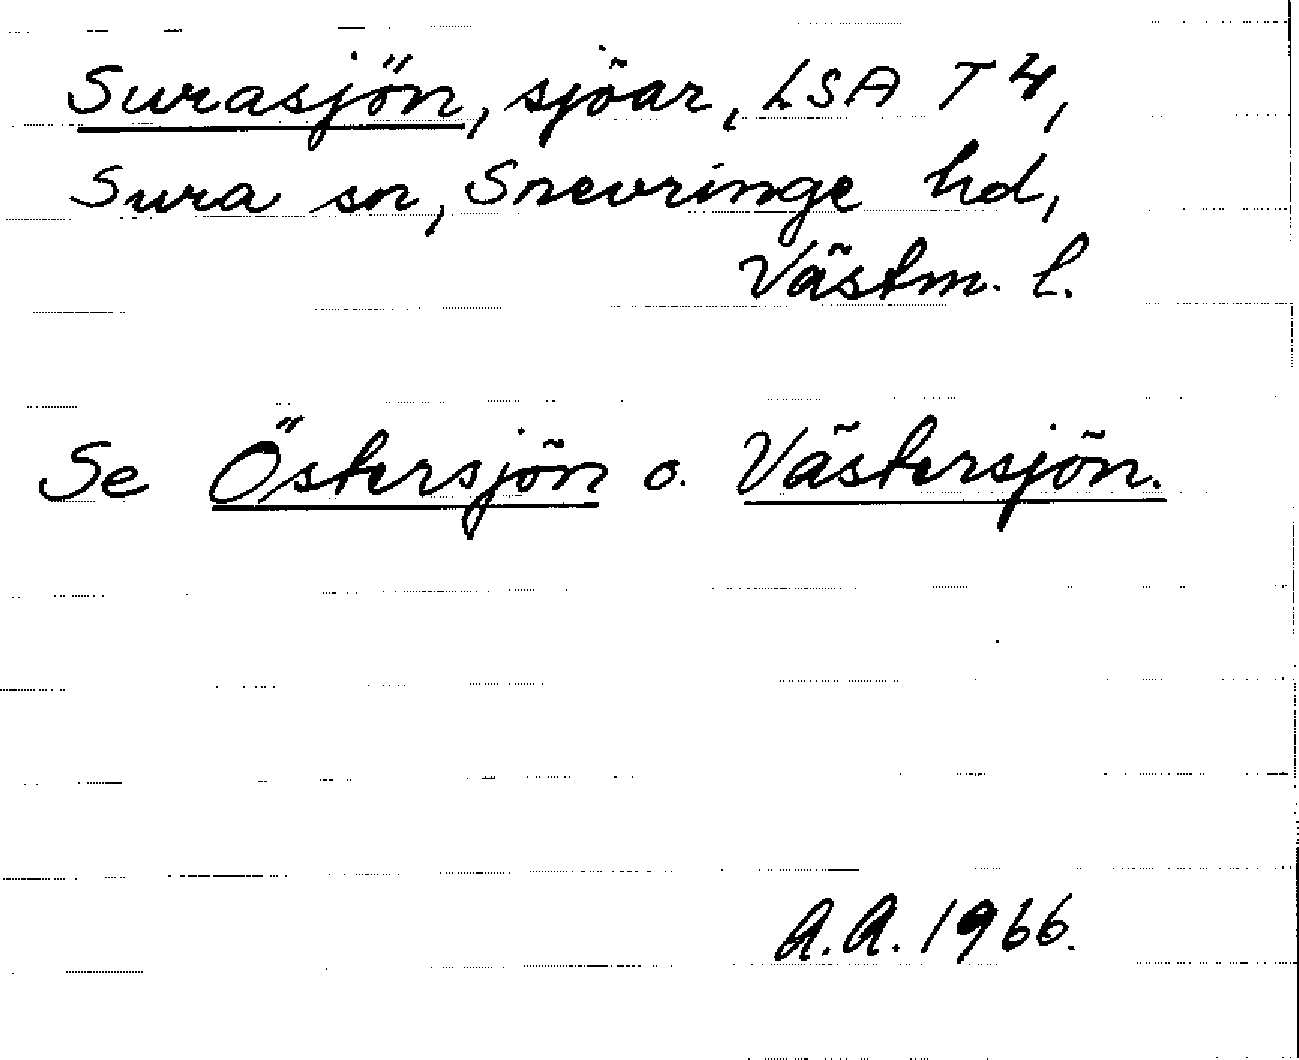 Surasjön, sjöar, LSA T 4,
Sura sn, Snevringe hd,
Västm. l.
Se Östersjön o. Västersjön.
A.A. 1966.